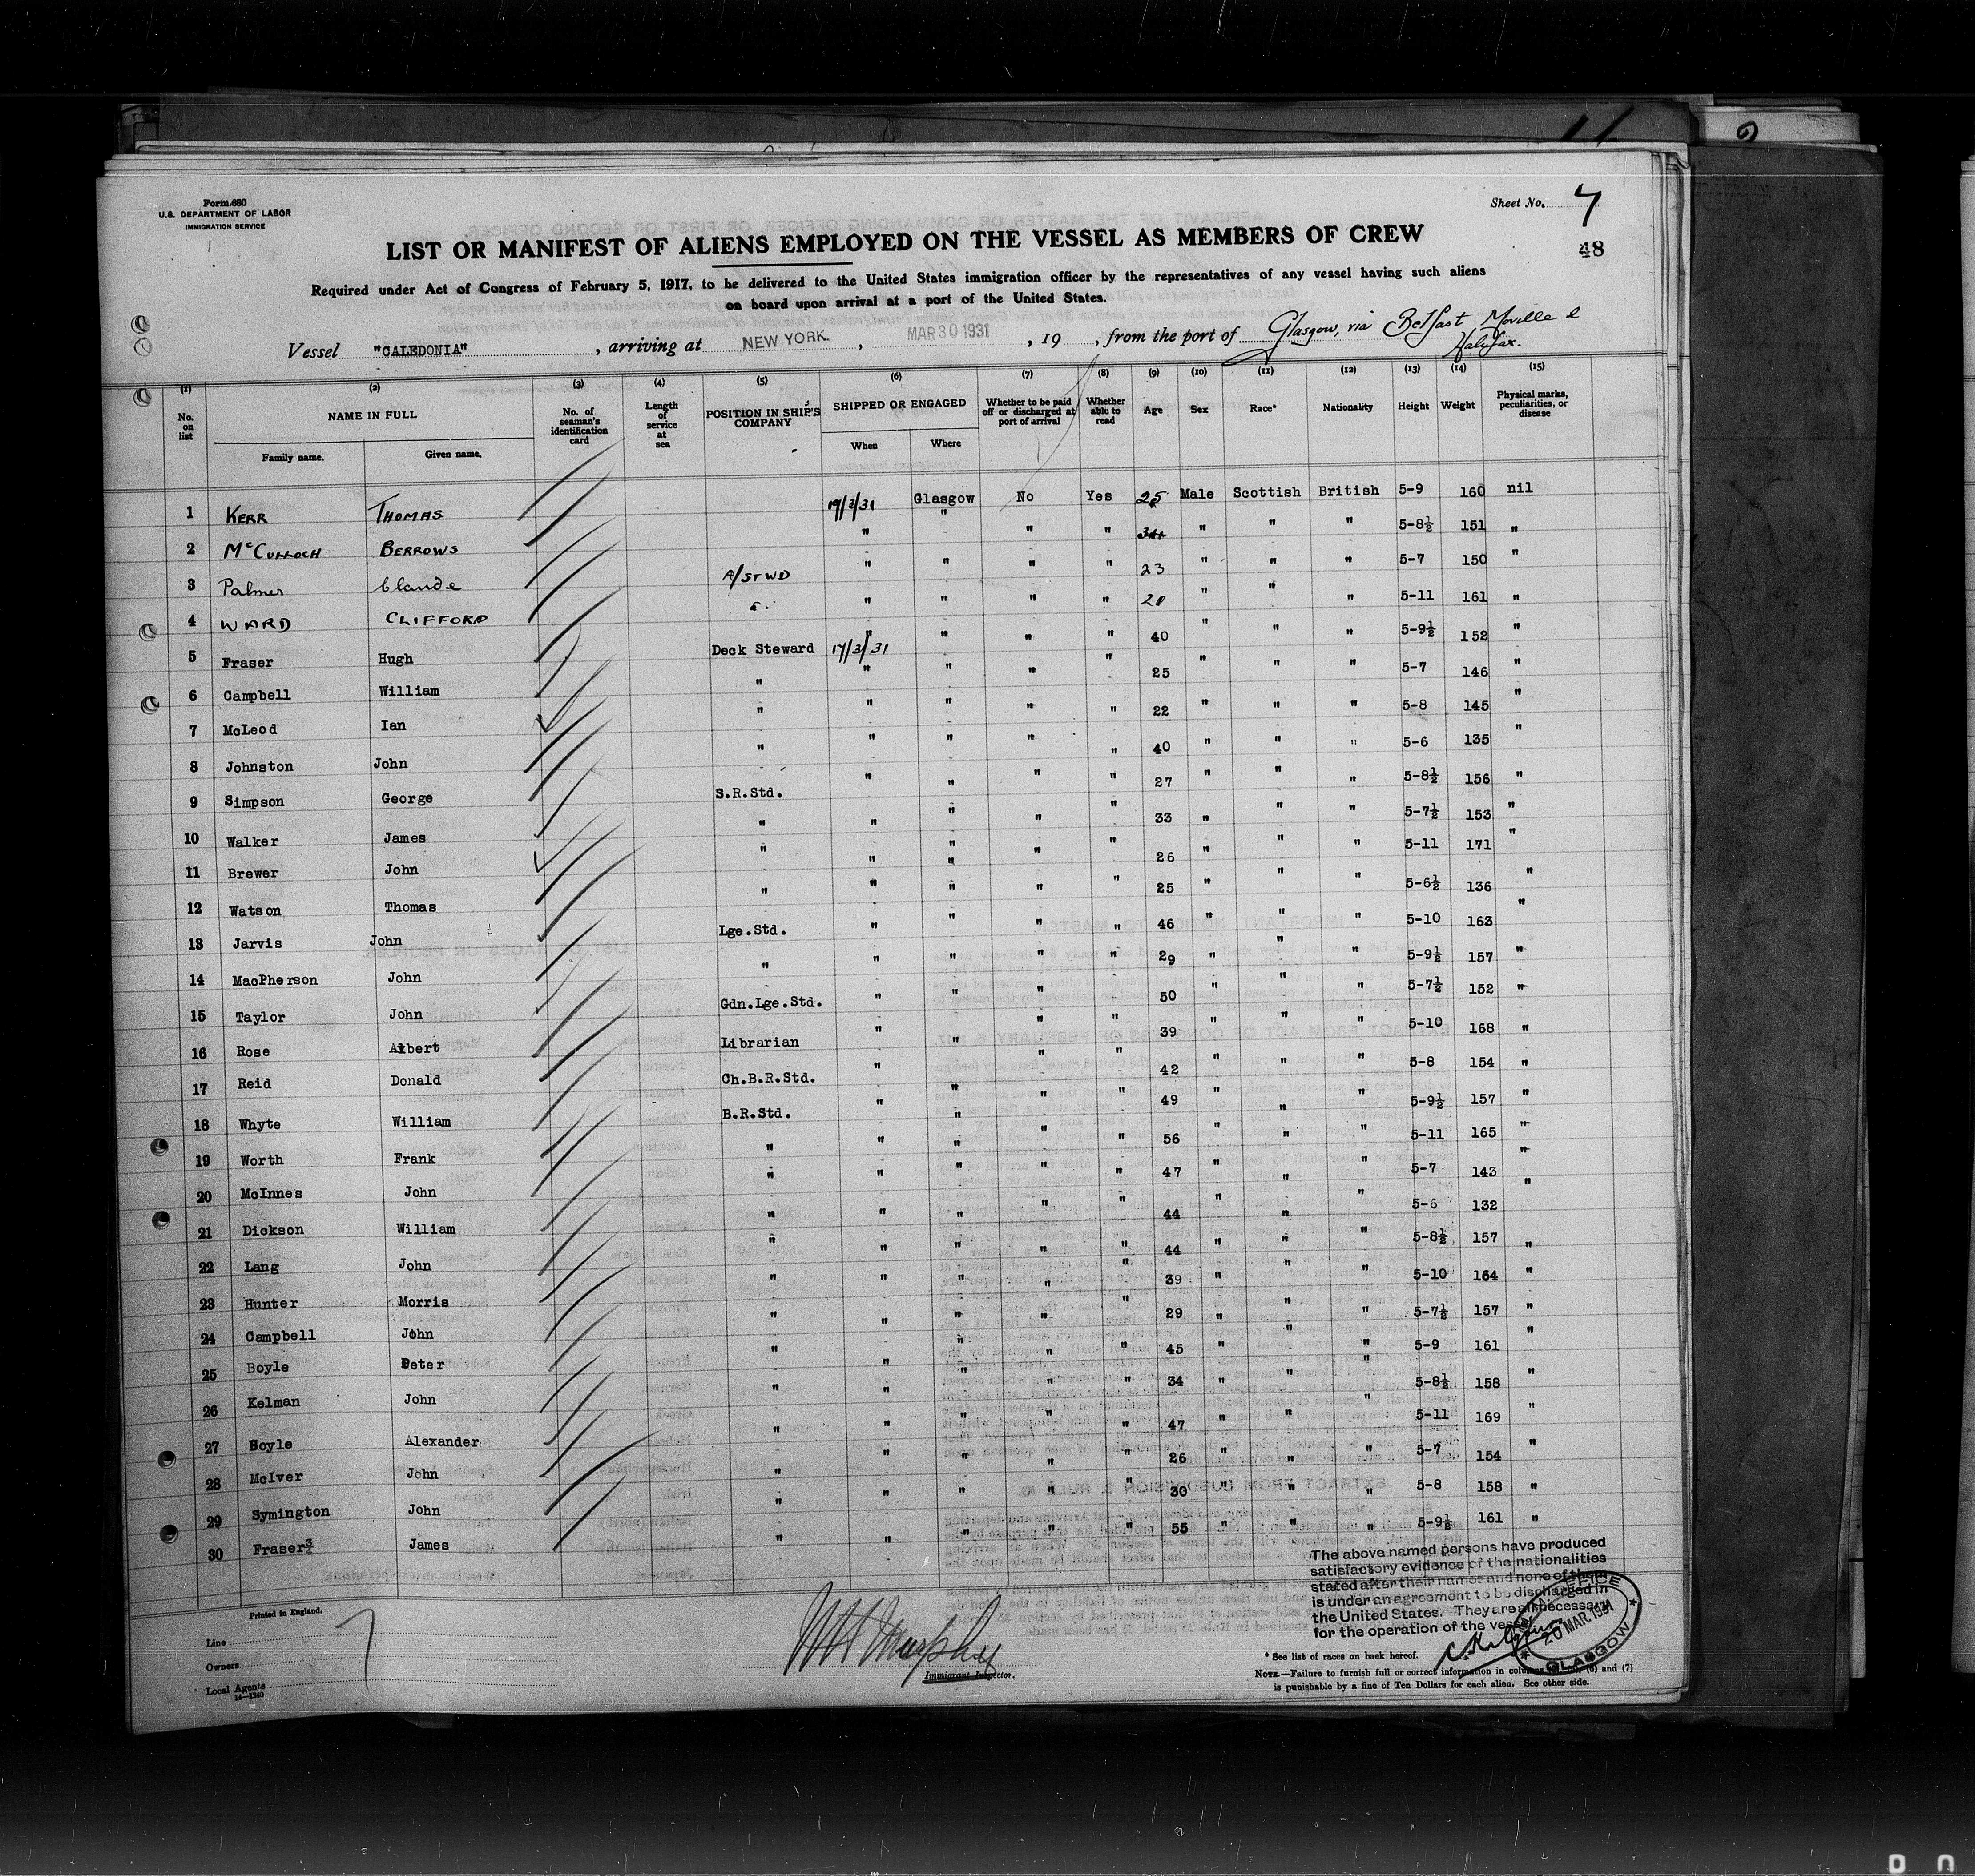 Form 680
U.S. DEPARTMENT OF LABOR
IMMIGRATION SERVICE
Sheet No. 7
48
LIST OR MANIFEST OF ALIENS EMPLOYED ON THE VESSEL AS MEMBERS OF CREW
Required under Act of Congress of February 5, 1917, to be delivered to the United States immigration officer by the representatives of any vessel having such aliens
on board upon arrival at a port of the United States.
Vessel "CALEDONIA", arriving at NEW YORK, MAR 30 1931, 19 , from the port of Glasgow, via Belfast Moville &
Halifax.
(1) (2) (3) (4) (5) (6) (7) (8) (9) (10) (11) (12) (13) (14) (15)
No. on list NAME IN FULL No. of seaman's identification card Length of service at sea POSITION IN SHIP'S COMPANY SHIPPED OR ENGAGED Whether to be paid off or discharged at port of arrival Whether able to read Age Sex Race* Nationality Height Weight Physical marks, peculiarities, or disease
Family name. Given name. When Where
1 KERR THOMAS 17/3/31 Glasgow No Yes 25 Male Scottish British 5-9 160 nil
2 McCULLOCH BERROWS " " " " 34 " " " 5-8½ 151 "
3 Palmer Claude A/STWD " " " " 23 " " " 5-7 150 "
4 WARD CLIFFORD " " " " " 20 " " " 5-11 161 "
5 Fraser Hugh Deck Steward 17/3/31 " " " 40 " " " 5-9½ 152 "
6 Campbell William " " " " " 25 " " " 5-7 146 "
7 McLeod Ian " " " " " 22 " " " 5-8 145 "
8 Johnston John " " " " " 40 " " " 5-6 135 "
9 Simpson George S.R.Std. " " " " 27 " " " 5-8½ 156 "
10 Walker James " " " " " 33 " " " 5-7½ 153 "
11 Brewer John " " " " " 26 " " " 5-11 171 "
12 Watson Thomas " " " " " 25 " " " 5-6½ 136 "
13 Jarvis John Lge.Std. " " " " 46 " " " 5-10 163 "
14 MacPherson John " " " " " 29 " " " 5-9½ 157 "
15 Taylor John Gdn.Lge.Std. " " " " 50 " " " 5-7½ 152 "
16 Rose Albert Librarian " " " " 39 " " " 5-10 168 "
17 Reid Donald Ch.B.R.Std. " " " " 42 " " " 5-8 154 "
18 Whyte William B.R.Std. " " " " 49 " " " 5-9½ 157 "
19 Worth Frank " " " " " 56 " " " 5-11 165 "
20 McInnes John " " " " " 47 " " " 5-7 143 "
21 Dickson William " " " " " 44 " " " 5-6 132 "
22 Lang John " " " " " 44 " " " 5-8½ 157 "
23 Hunter Morris " " " " " 39 " " " 5-10 164 "
24 Campbell John " " " " " 29 " " " 5-7½ 157 "
25 Boyle Peter " " " " " 45 " " " 5-9 161 "
26 Kelman John " " " " " 34 " " " 5-8½ 158 "
27 Boyle Alexander " " " " " 47 " " " 5-11 169 "
28 McIver John " " " " " 26 " " " 5-7 154 "
29 Symington John " " " " " 30 " " " 5-8 158 "
30 Fraser James " " " " " 55 " " " 5-9½ 161 "
The above named persons have produced
satisfactory evidence of the nationalities
stated after their names and none of them
is under an agreement to be discharged in
the United States. They are all necessary
for the operation of the vessel.
20 MAR. 1931
GLASGOW
Printed in England.
Line
Owners
Local Agents
14—1240
W H Murphy
Immigrant Inspector.
* See list of races on back hereof.
NOTE.—Failure to furnish full or correct information in columns (6) and (7)
is punishable by a fine of Ten Dollars for each alien. See other side.